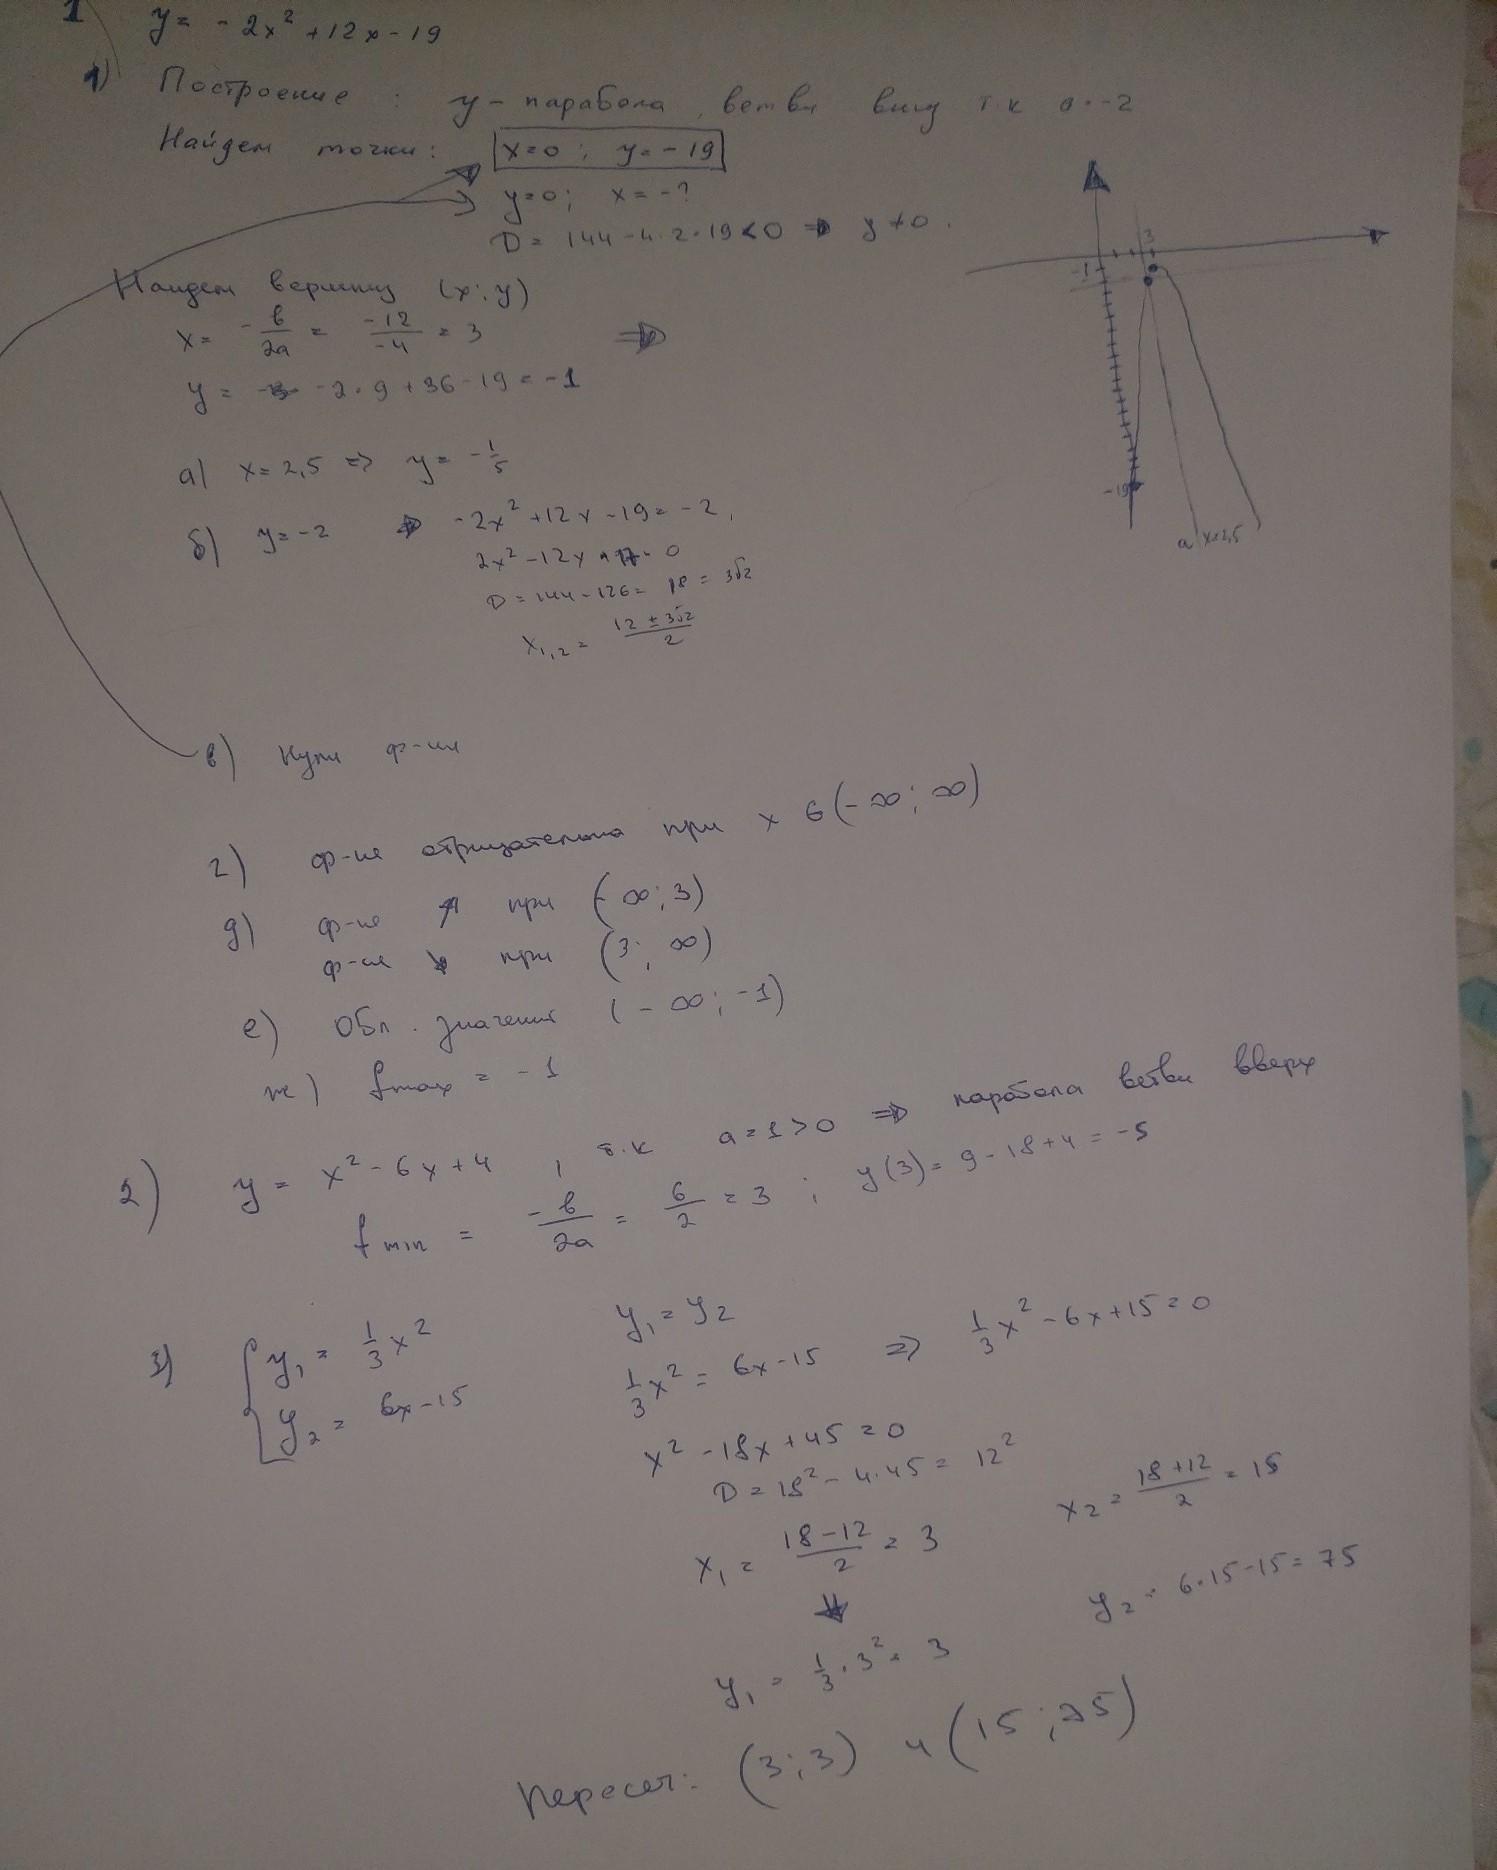 1 y = -2x² + 12x - 19
1) Построение : y - парабола, ветви вниз т.к a = -2
Найдем точки: x=0 ; y = -19
y=0; x = -?
D = 144 - 4·2·19 < 0 ⇒ y ≠ 0.
Найдем вершину (x; y)
x = -b/2a = -12/-4 = 3 ⇒
y = -2·9 + 36 - 19 = -1
3
-1
-19
a x=2,5
а) x = 2,5 ⇒ y = -1/5
б) y = -2 ⇒ -2x² + 12x - 19 = -2,
2x² - 12x + 17 = 0
D = 144 - 126 = 18 = 3√2
x₁,₂ = (12 ± 3√2)/2
в) Нули ф-ии
г) ф-ия отрицательна при x ∈ (-∞; ∞)
д) ф-ия ↗ при (-∞; 3)
ф-ия ↘ при (3; ∞)
е) Обл. значений (-∞; -1)
ж) fmax = -1
2) y = x² - 6x + 4 , т.к a = 1 > 0 ⇒ парабола ветви вверх
fmin = -b/2a = 6/2 = 3 ; y(3) = 9 - 18 + 4 = -5
3) { y₁ = 1/3 x² y₁ = y₂
y₂ = 6x - 15 1/3 x² = 6x - 15 ⇒ 1/3 x² - 6x + 15 = 0
x² - 18x + 45 = 0
D = 18² - 4·45 = 12²
x₁ = (18 - 12)/2 = 3 x₂ = (18 + 12)/2 = 15
⇓
y₁ = 1/3 · 3² = 3 y₂ = 6·15 - 15 = 75
Пересеч: (3; 3) и (15; 75)